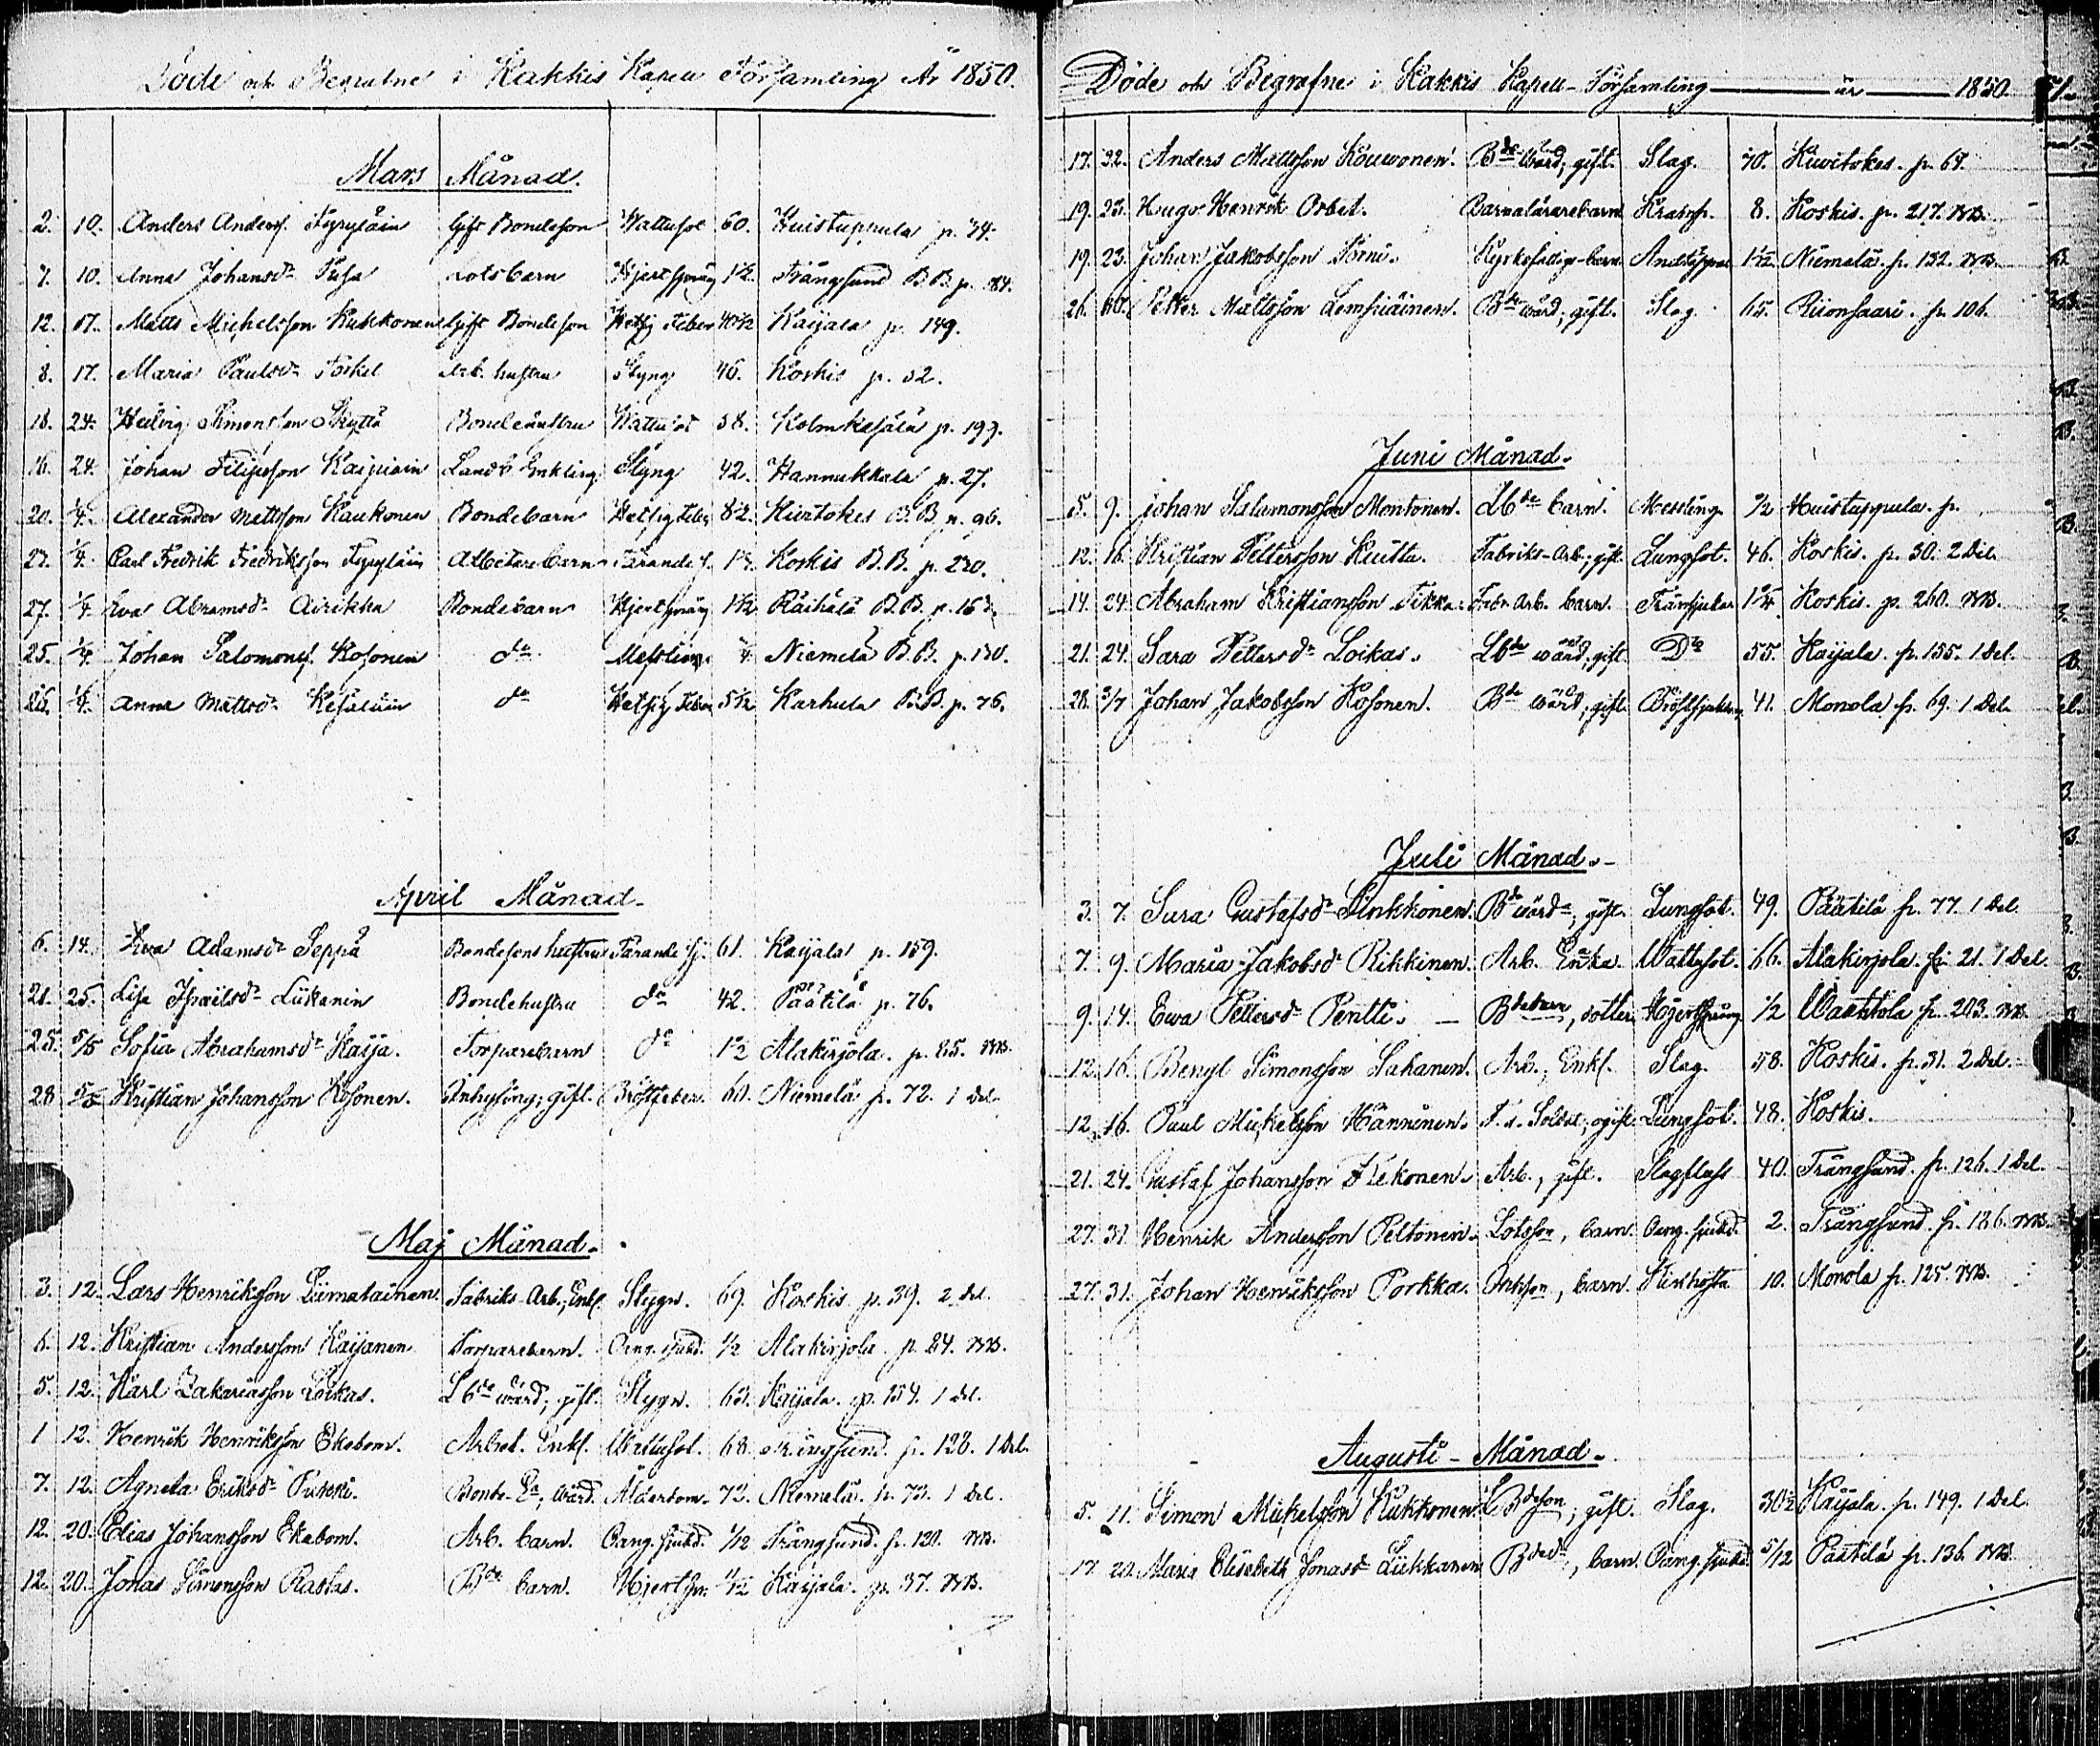 Döde och Begrafne i Kakkis Kapell Församling År 1850.
Mars Månad.
2. 10. Anders Anders. Tyryläin Gift Bondeson Wattusot 60. Huistuppula p. 74.
7. 10. Anna Johansdr Tusa Lotsbarn Hjertsprång 1 1/2. Trångsund B.B. p. 184.
12. 17. Matts Michelsson Kukkonen Gift Bondeson Hetsig Feber 40 1/2 Kaijala p. 149.
8. 17. Maria Paulsdr Torkel Arb. hustru Styng 46. Koskis p. 52.
18. 24. Hedvig Simonsson Skyttä Bondeänkthru Wattusot 58. Kolmikesälä p. 199.
16. 24. Johan Filipsson Kaipiain Landb. Enkling Styng 42. Hannukkala p. 27.
20. 1/4. Alexander Mattsson Kaukonen Bondebarn Hetsig Feber 8/12. Kiertokes B.B. p. 96.
27. 1/4. Carl Fredrik Fredriksson Tyryläin Arbetare barn Tärande s. Koskis B.B. p. 220.
27. 1/4. Eva Abramsdr Airikka Bondebarn Hjertsprång 1 1/2 Räihälä B.B. p. 16
25. 1/4. Johan Salomons. Kosonen do Messling Niemelä B.B. p. 130.
26. 1/4. Anna Mattsdr Kesäläin do Hetsig Feber 5 1/2 Karhula B.B. p. 76.
April Månad.
6. 14. Eva Adamsdr Seppä Bondesons hustru Tärande sj. 61. Kaijala p. 159.
21. 25. Lisa Israilsdr Lükanin Bondehustru do 42. Päätilä p. 76.
25. 5/5 Sofia Abrahamsdr Kaija. Torparebarn do Alakirjola. p. 85. BB.
28 5/5 Kristian Johansson Kosonen. Inhysing; gift. Bröstfeber. 60. Niemelä p. 72. 1 Del.
Maj Månad.
3. 12. Lars Henriksson Liimatainen. Fabriks Arb., Enkl. Stygn. 69. Koskis p. 39. 2 Del.
6. 12. Kristian Andersson Kaijanen Torparebarn. Oang. sjukd. 1/2 Alakirjola p. 84. BB.
5. 12. Karl Zakariasson Loikas. Lbde wärd; gift. Stygn. 63. Kaijala. p. 154. 1 Del.
1 12. Henrik Henriksson Ekebom. Arbet. Enkl. Wattusot. 68. Trångsund. p. 128. 1 Del.
7. 12. Agneta Eriksdr Bonde-Ea; wärd. Ålderdom. 72. Niemelä. p. 73. 1 Del.
12. 20. Elias Johansson Ekebom. Arb. barn. Oang. sjukd. 1/12 Trångsund. p. 120. BB.
12. 20. Jonas Simonsson Rastas. Bde barn. Hjertspr. 11/12 Kaijala. p. 37. BB.
Döde och Begrafne i Kakkis Kapell-Församling år 1850.
17. 22. Anders Mattsson Kouwonen. Bde wärd; gift. Slag. 70. Kiwitokes. p. 67.
19. 23. Hugo Henrik Orbet. Barnalärarebarn Kramp. 8. Koskis. p. 217. BB.
19. 23. Johan Jakobsson Törni. Kyrkofattige-barn Andtäppa 1 1/12 Niemelä. p. 132. BB.
26. 30. Petter Mattsson Lempiäinen. Bde wärd; gift. Slag. 65. Riionsaari. p. 106.
Juni Månad.
5. 9. Johan Salamonsson Montonen. Lbde barn. Messling. 1/2 Huistuppula. p.
12. 16. Kristian Pettersson Kuitta. Fabriks-Arb.; gift. Lungsot. 46. Koskis. p. 30. 2 Del.
14. 24. Abraham Kristiansson Tikka. Fabr. Arb. barn. Tärsjukan Koskis. p. 260. BB.
21. 24. Sara Pettersdr Loikas. Lbde wärd; gift. Do 55. Kaijala. p. 155. 1 Del.
28. 3/7 Johan Jakobsson Kosonen. Bde wärd; gift. Bröstsjukdom 41. Monola p. 69. 1 Del.
Juli Månad.
3. 7. Sara Gustafsdr Sinkkonen. Bde wärda; gift. Lungsot. 49. Päätilä p. 77. 1 Del.
7. 9. Maria Jakobsdr Rikkinen. Arb. Enka. Wattusot. 66. Alakirjola. p. 21. 1 Del.
9. 14. Ewa Pettersdr Pentti. Bdebarn, dotter Hjertsprång 1/2 Waahtola p. 203. BB.
12. 16. Bengt Simonsson Sahanen. Arb., Enkl. Slag. 58. Koskis. p. 31. 2 Del.
12. 16. Paul Mickelsson Hänninen. F.d. Soldat; ogift. Lungsot. 48. Koskis.
21. 24. Gustaf Johansson Tiekonen. Arb., gift. Slagfluss 40. Trångsund. p. 126. 1 Del.
27. 31. Henrik Andersson Peltonen. Lotsson, barn. Oang. sjukd. 2. Trångsund. p. 186. BB.
27. 31. Johan Henriksson Porkka. Inhson, barn. Kikhosta 10. Monola p. 125. BB.
Augusti-Månad.
5. 11. Simon Mickelsson Kukkonen. Bdeson; gift. Slag. 30 1/2 Kaijala. p. 149. 1 Del.
17. 20. Maria Elisabeth Jonasdr Liikkanen Bdedr, barn. Oang. sjukd. 5/12 Päätilä p. 136. BB.